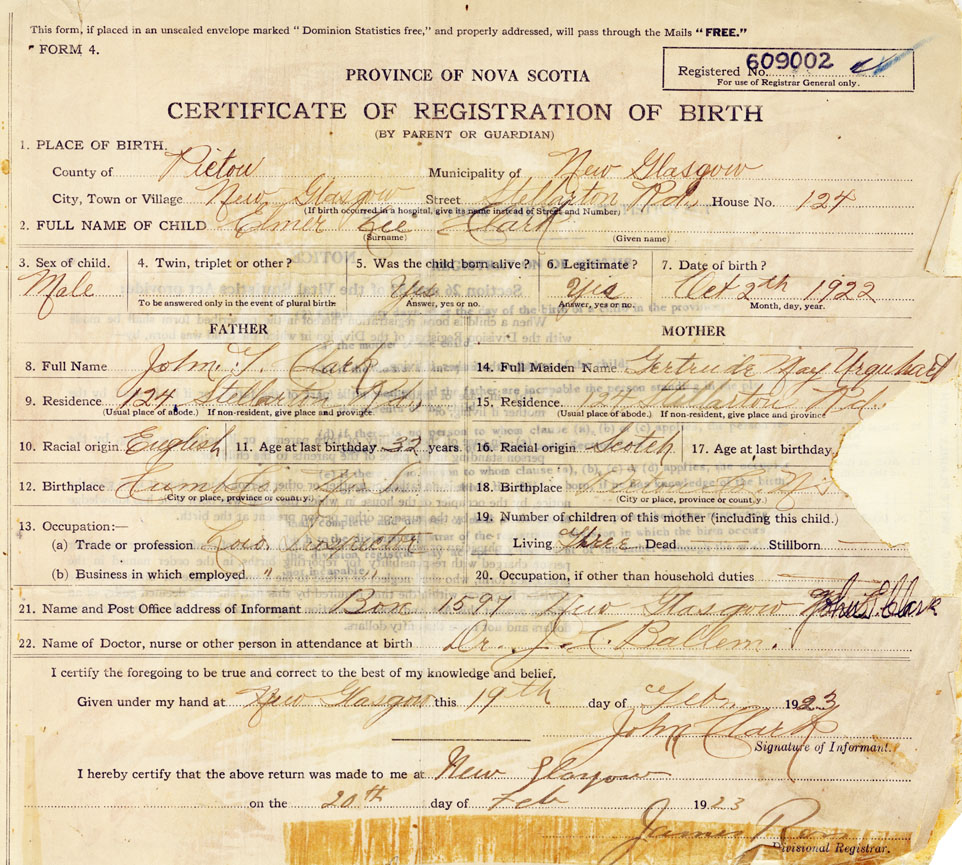 This form, if placed in an unsealed envelope marked "Dominion Statistics free," and properly addressed, will pass through the Mails "FREE."
FORM 4.
Registered No. 609002
For use of Registrar General only.
PROVINCE OF NOVA SCOTIA
CERTIFICATE OF REGISTRATION OF BIRTH
(BY PARENT OR GUARDIAN)
1. PLACE OF BIRTH.
County of Pictou Municipality of New Glasgow
City, Town or Village New Glasgow Street Stellarton Rd. House No. 124
(If birth occurred in a hospital, give its name instead of Street and Number)
2. FULL NAME OF CHILD Elmer Lee Clark
(Surname) (Given name)
3. Sex of child. 4. Twin, triplet or other? 5. Was the child born alive? 6. Legitimate? 7. Date of birth?
Male Yes Yes Oct 2th 1922
To be answered only in the event of plural birth Answer, yes or no. Answer, yes or no. Month, day, year.
FATHER MOTHER
8. Full Name John Clark 14. Full Maiden Name Gertrude May Urquhart
9. Residence 124 Stellarton Rd, 15. Residence 124 Stellarton Rd,
(Usual place of abode.) If non-resident, give place and province. (Usual place of abode.) If non-resident, give place and province.
10. Racial origin English 11. Age at last birthday 32 years. 16. Racial origin Scotch 17. Age at last birthday
12. Birthplace 18. Birthplace
(City or place, province or county.) (City or place, province or county.)
19. Number of children of this mother (including this child.)
13. Occupation:—
(a) Trade or profession Living Three Dead Stillborn —
(b) Business in which employed " " 20. Occupation, if other than household duties —
21. Name and Post Office address of Informant Box 1597 New Glasgow John Clark
22. Name of Doctor, nurse or other person in attendance at birth Dr. J. Ballem.
I certify the foregoing to be true and correct to the best of my knowledge and belief.
Given under my hand at New Glasgow this 19th day of Feb. 1923
John Clark
Signature of Informant.
I hereby certify that the above return was made to me at New Glasgow
on the 20th day of Feb 1923
James
Divisional Registrar.